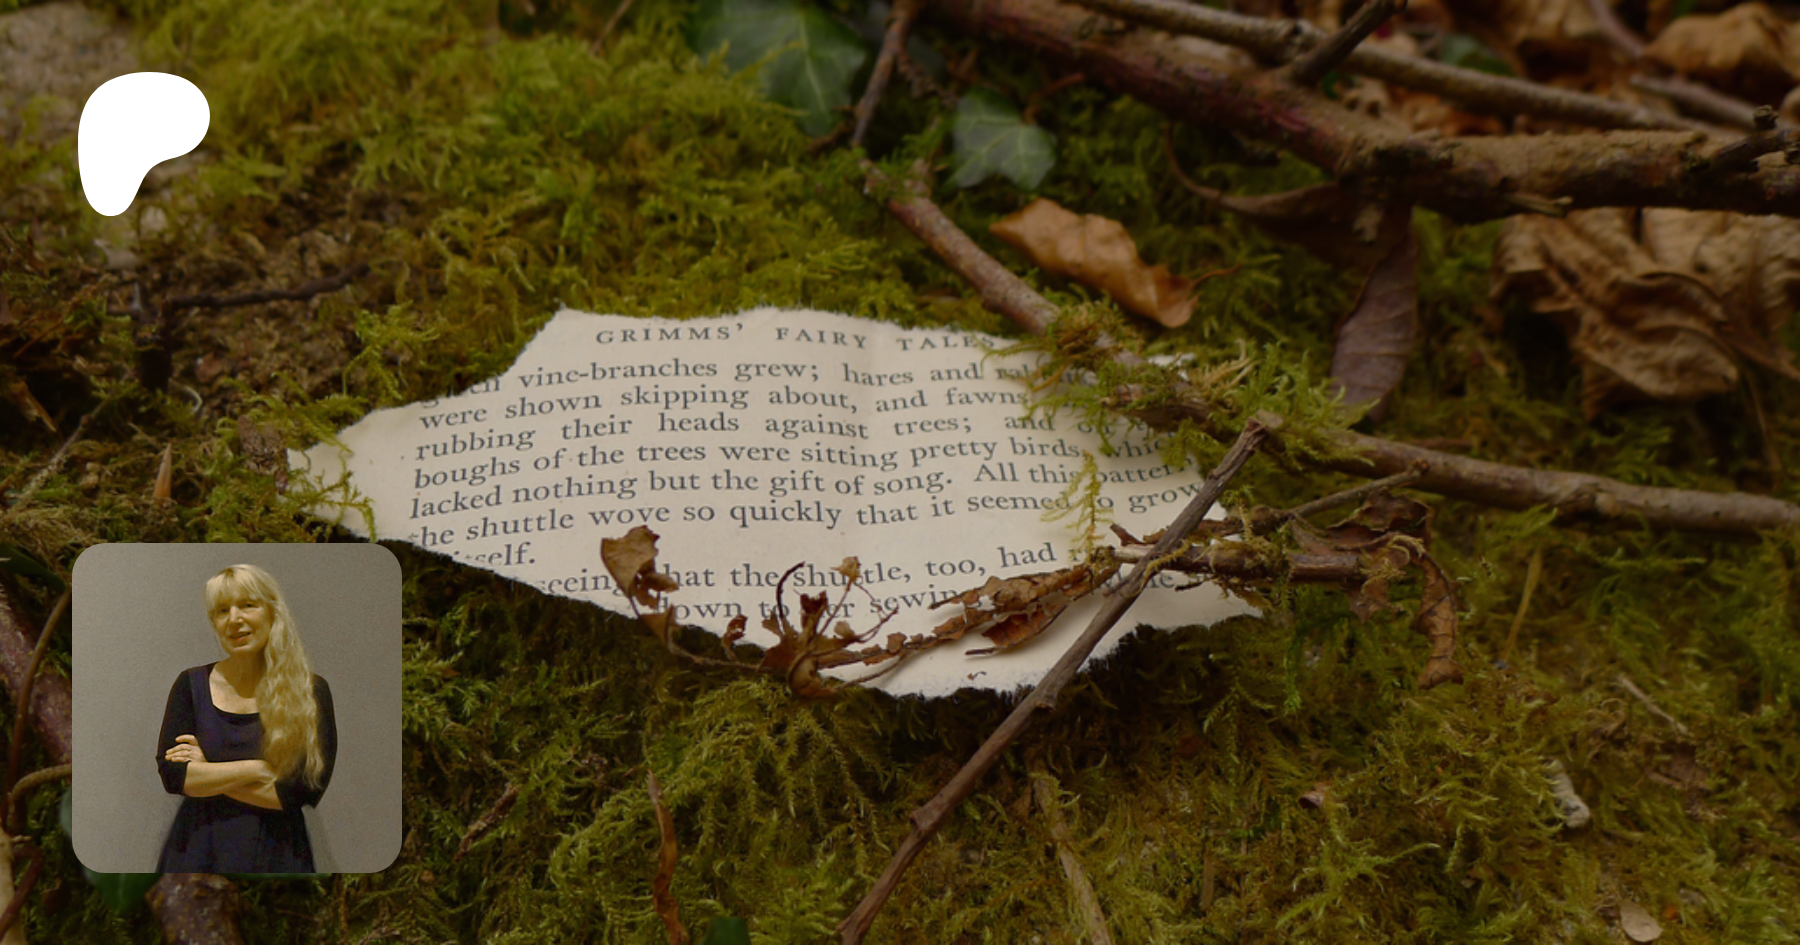 GRIMMS' FAIRY TALES
vine-branches grew; hares and
were shown skipping about, and fawns
rubbing their heads against trees; and on
boughs of the trees were sitting pretty birds, which
lacked nothing but the gift of song. All this pattern
the shuttle wove so quickly that it seemed to grow
itself.
seeing that the shuttle, too, had
down to her sewing